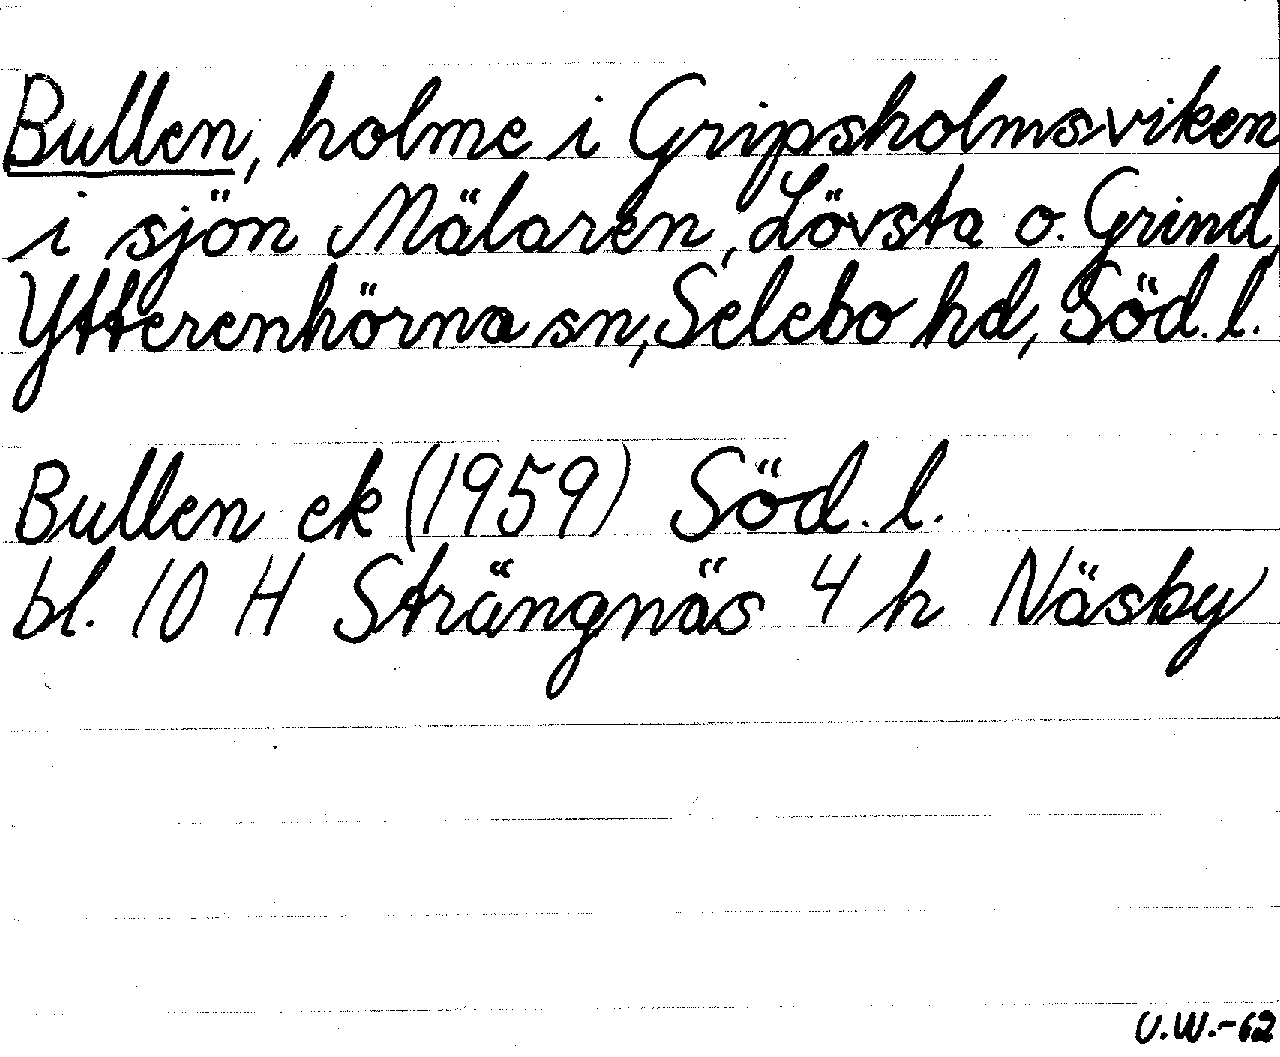 Bullen, holme i Gripsholmsviken
i sjön Mälaren, Lövsta o. Grind,
Ytterenhörna sn, Selebo hd, Söd. l.
Bullen ek (1959) Söd. l.
bl. 10 H Strängnäs 4 h Näsby
U.W.-62